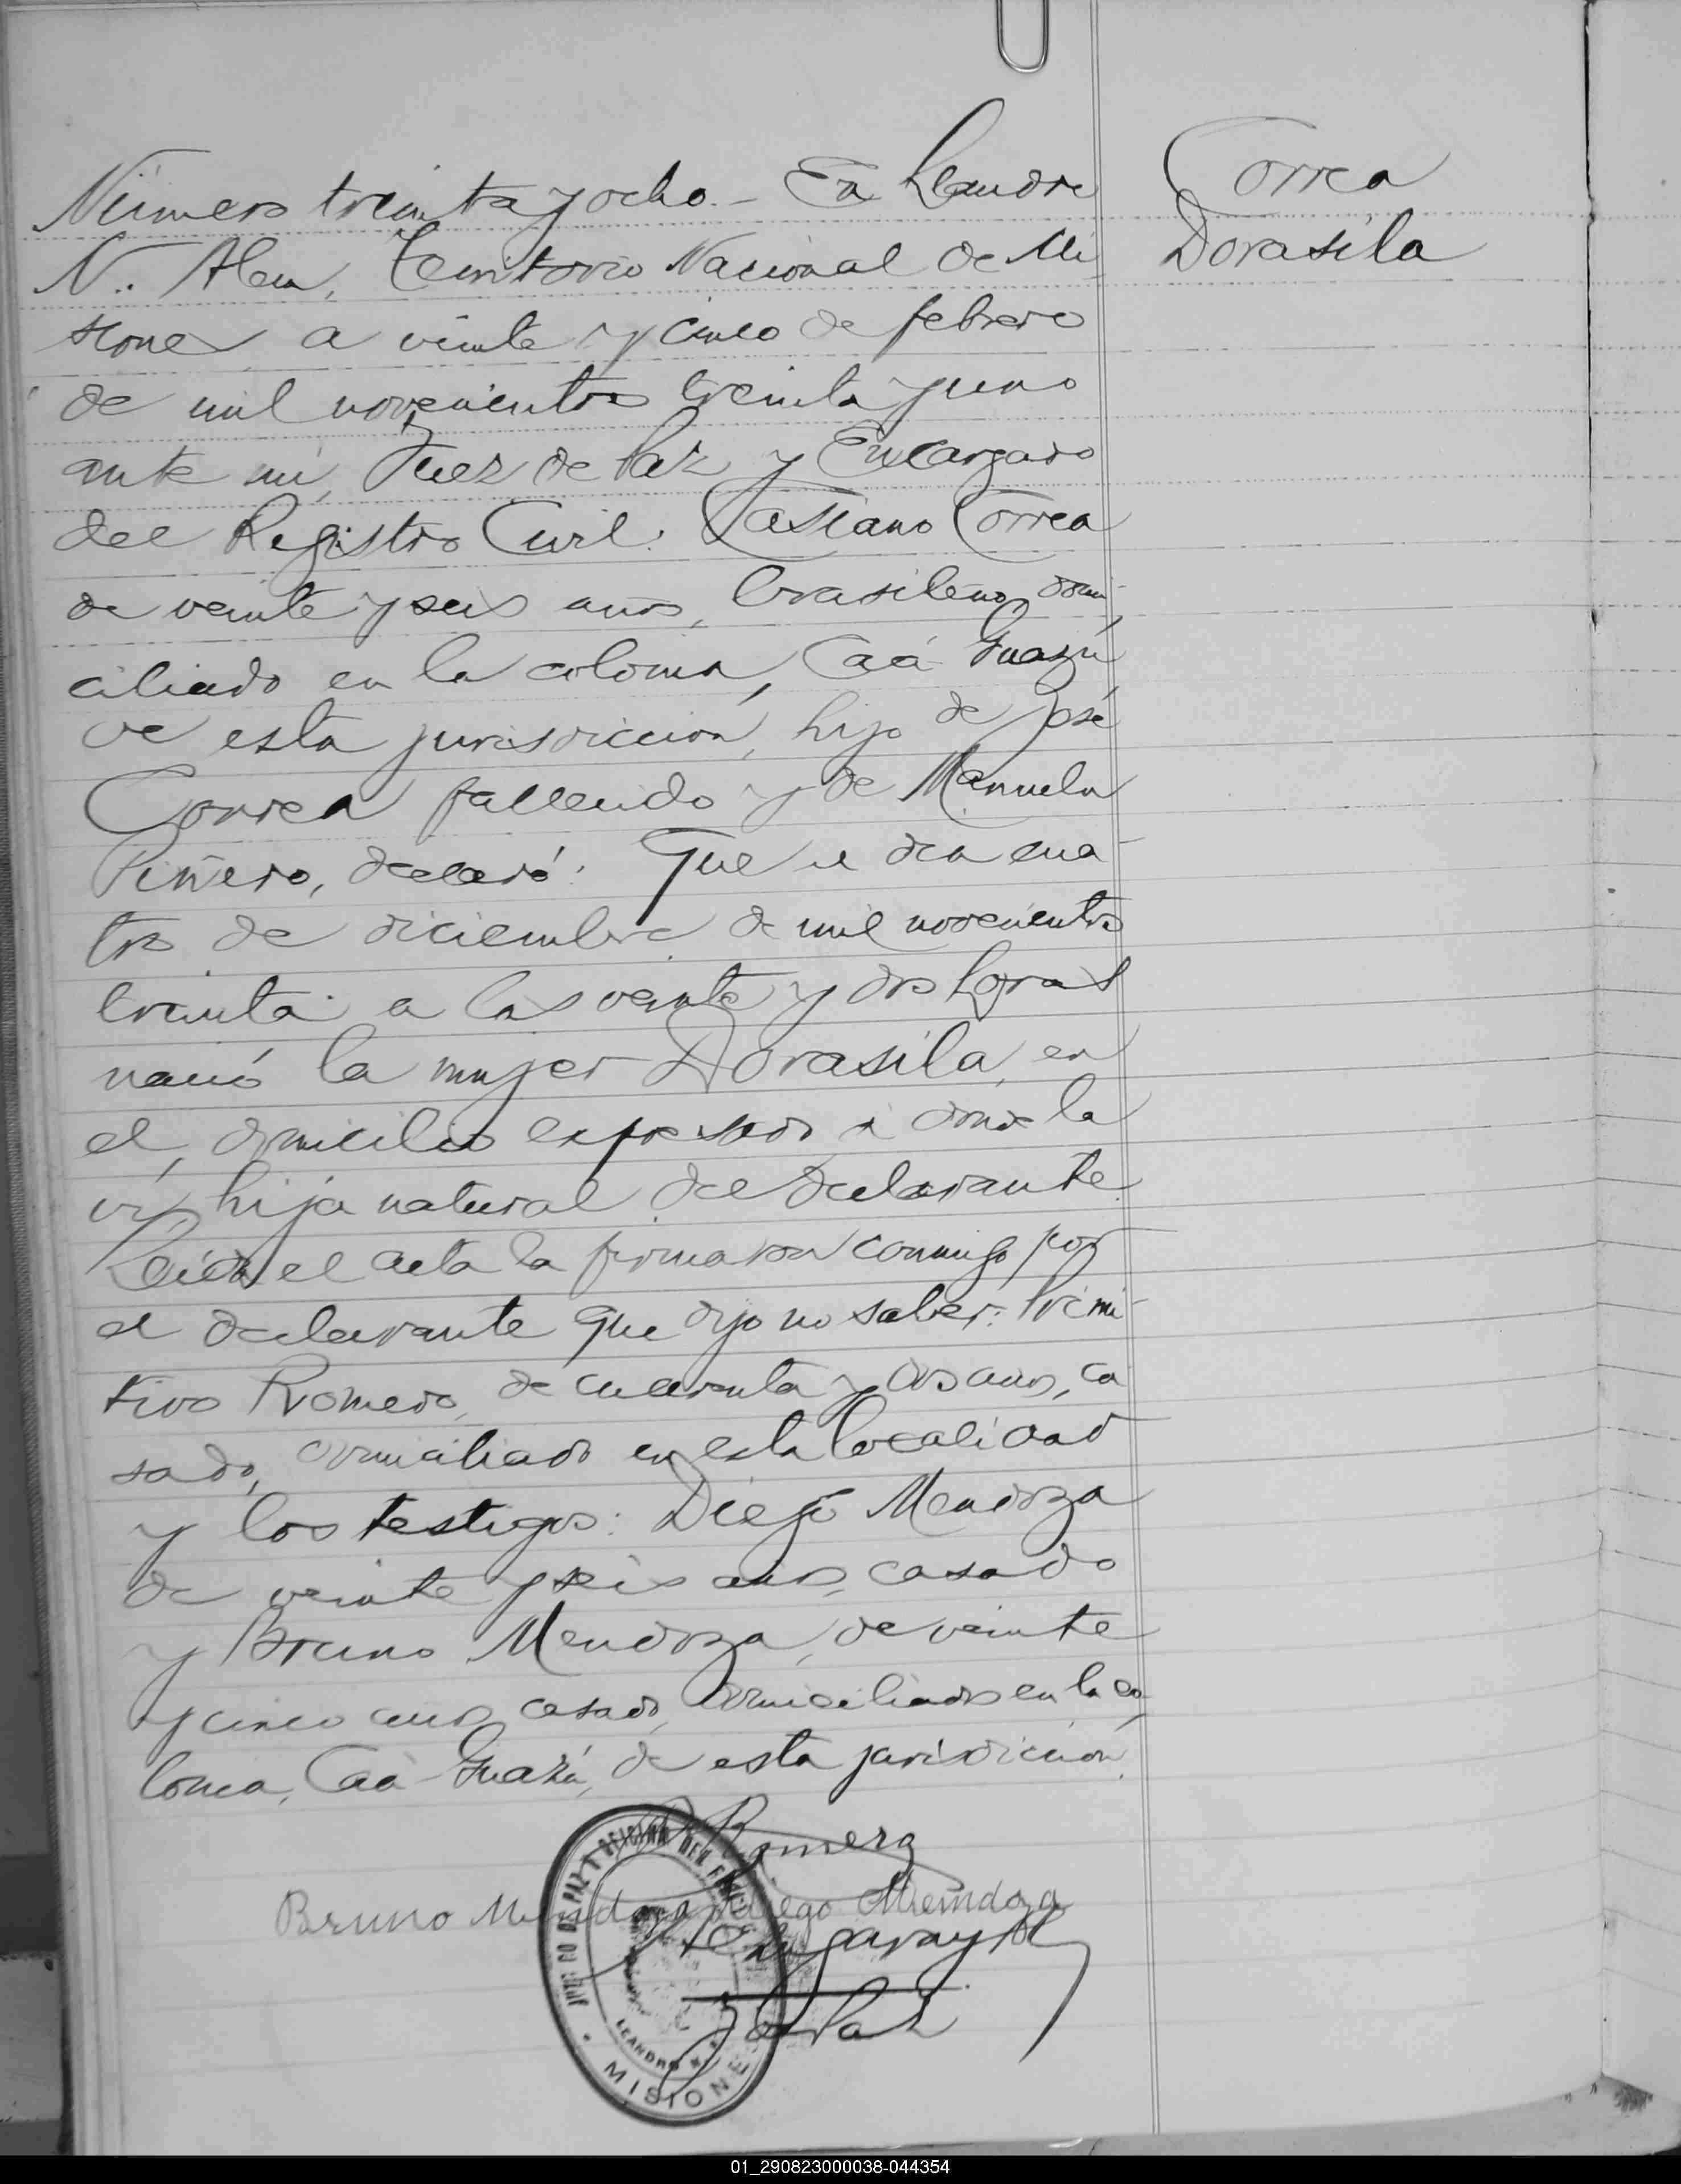 Correa
Dorasila
Número treinta y ocho.- En Leandro
N. Alem, Territorio Nacional de Mi
siones a veinte y cinco de febrero
de mil novecientos treinta y uno
ante mí, Juez de Paz y Encargado
del Registro Civil: Casiano Correa
de veinte y seis años, brasileño, domi-
ciliado en la colonia, Caá Guazú,
de esta jurisdicción, hijo de José
Correa fallecido y de Manuela
Piñero, declaró: Que el dia cua-
tro de diciembre de mil novecientos
treinta a las veinte y dos horas
nació la mujer Dorasila, en
el domicilio expresado a donde la
ví, hija natural del declarante.
Leída el acta la firmaron conmigo por
el declarante que dijo no saber: Primi-
tivo Romero, de cuarenta y dos años, ca
sado, domiciliado en esta localidad
y los testigos: Diego Mendoza
de veinte y seis años, casado
y Bruno Mendoza, de veinte
y cinco años, casado, domiciliados en la co-
lonia, Caá-Guazú, de esta jurisdicción.
P. Romero
Bruno Mendoza Diego Mendoza
J. de Paz
JUZGADO DE PAZ Y OFICINA DEL
LEANDRO N.
MISIONES
01_290823000038-044354